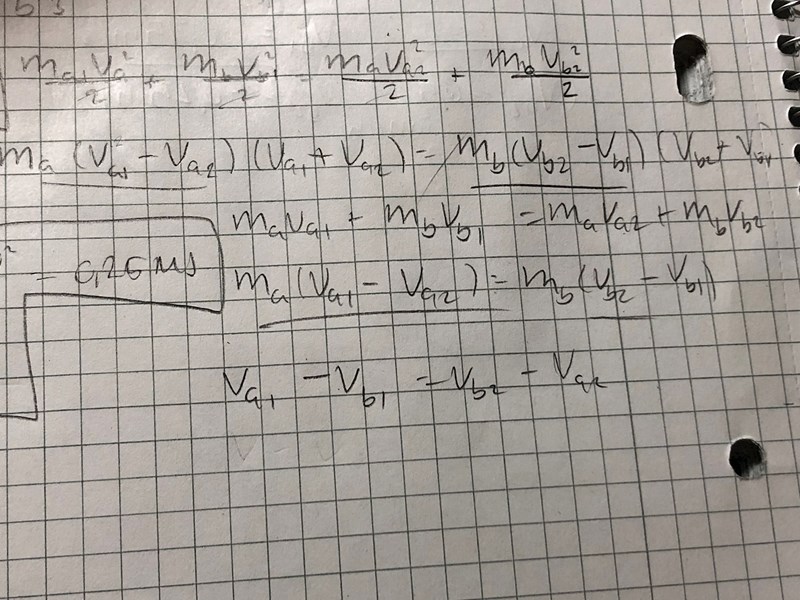 m_a v_a1²/2 + m_b v_b1²/2 = m_a v_a2²/2 + m_b v_b2²/2
m_a (v_a1 - v_a2) (v_a1 + v_a2) = m_b (v_b2 - v_b1) (v_b2 + v_b1)
m_a v_a1 + m_b v_b1 = m_a v_a2 + m_b v_b2
= 0,26 MJ
m_a (v_a1 - v_a2) = m_b (v_b2 - v_b1)
v_a1 - v_b1 = v_b2 - v_a2